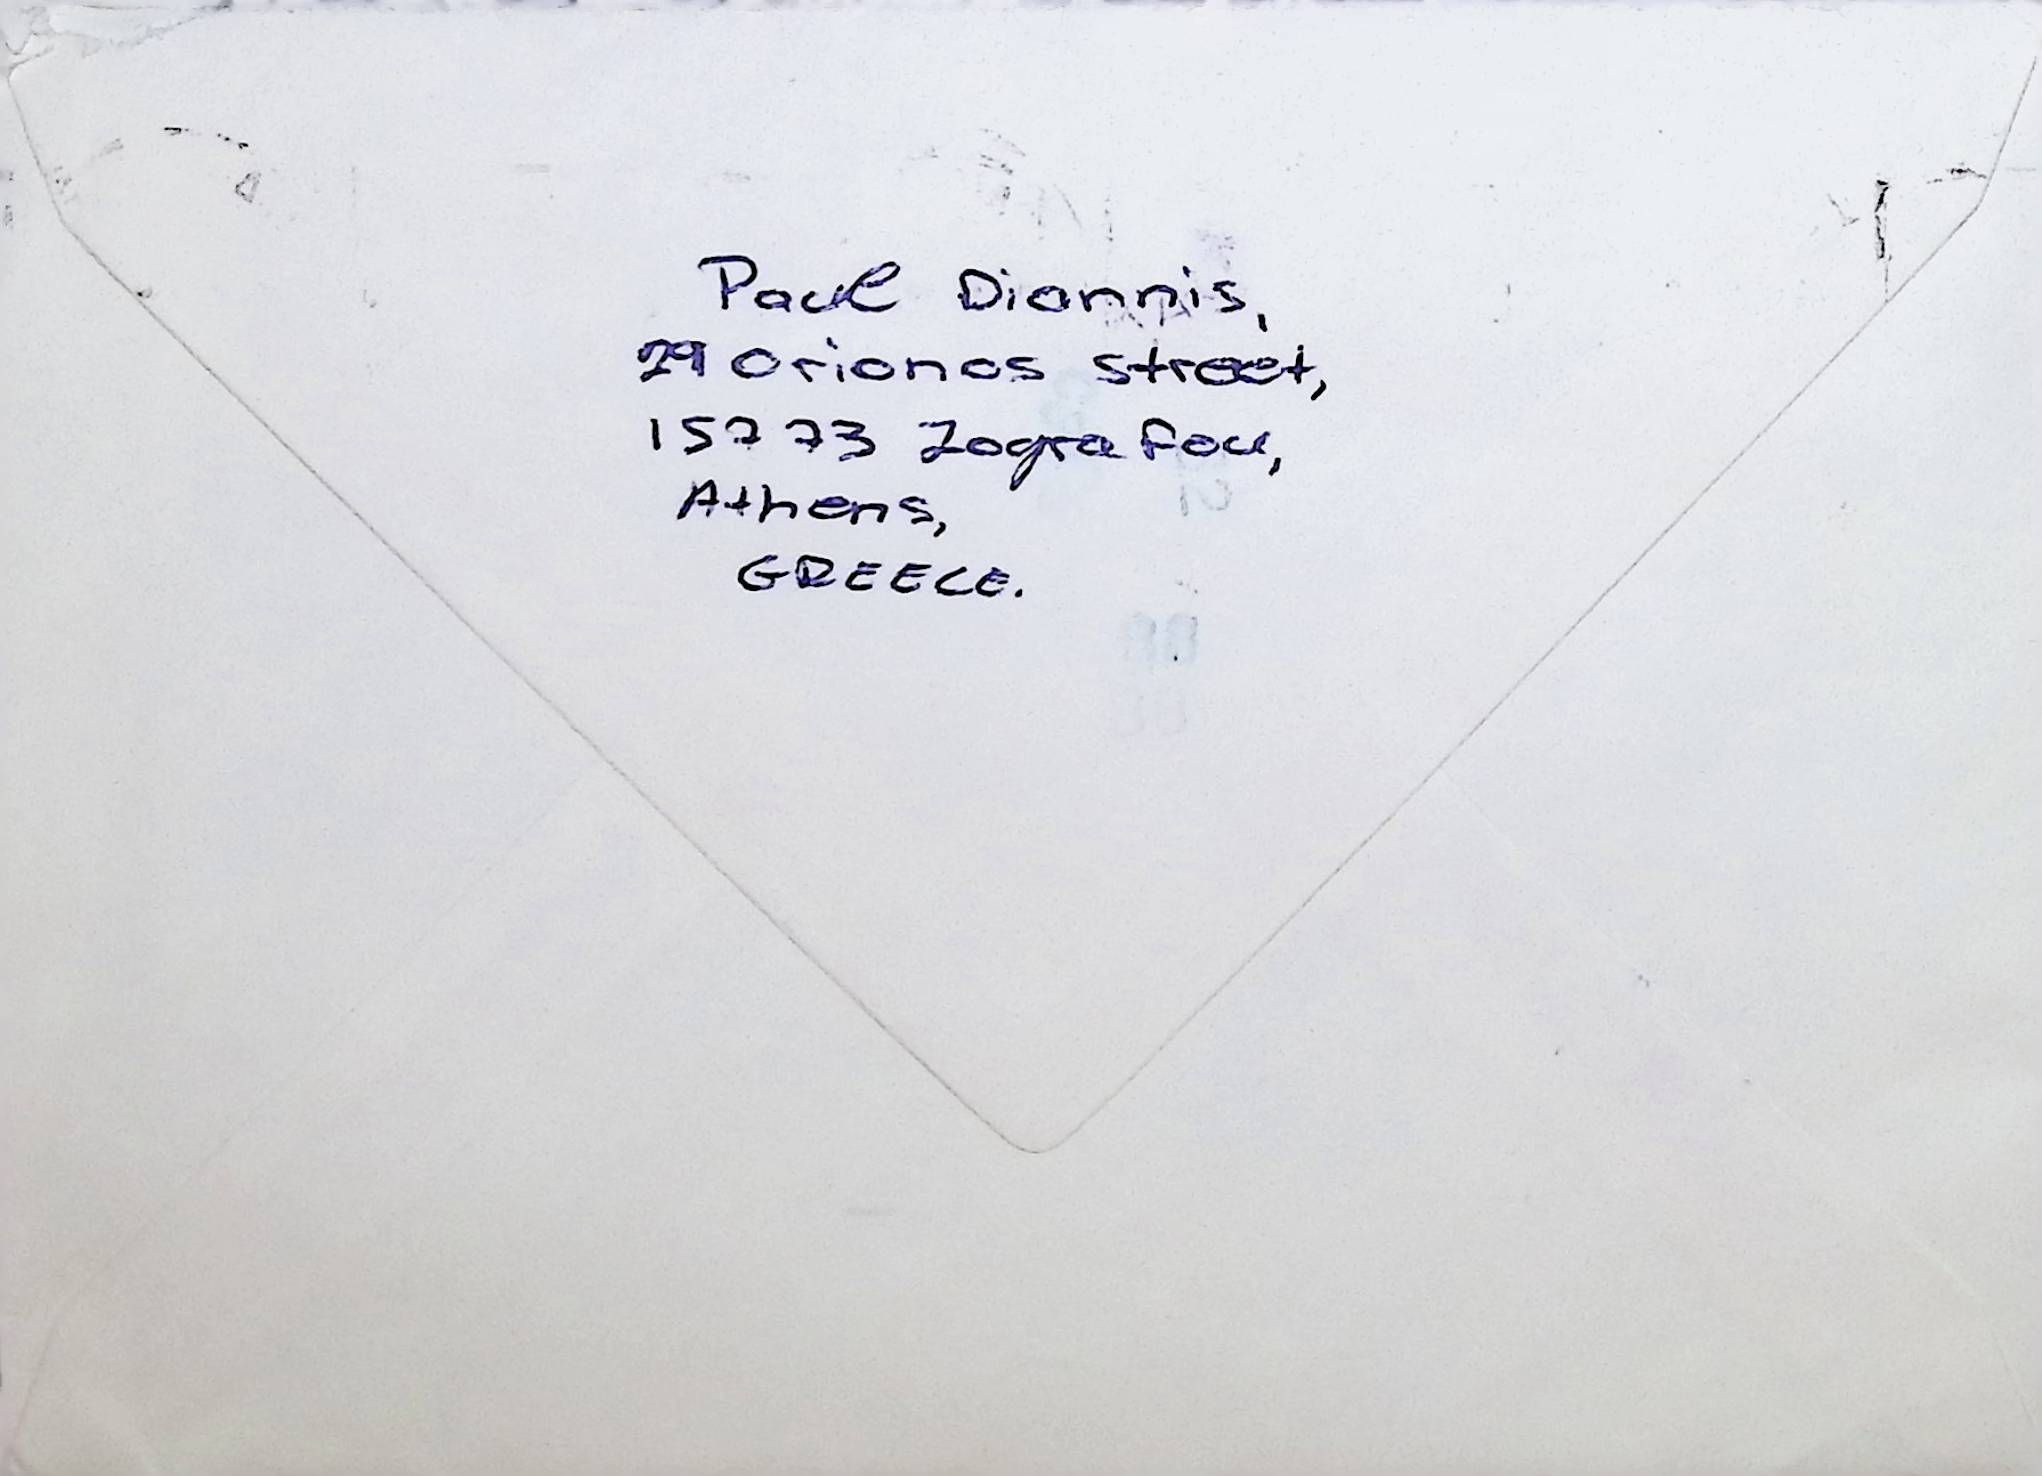 Paul Dionnis,
29 Orionos street,
15773 Zografou,
Athens,
GREECE.